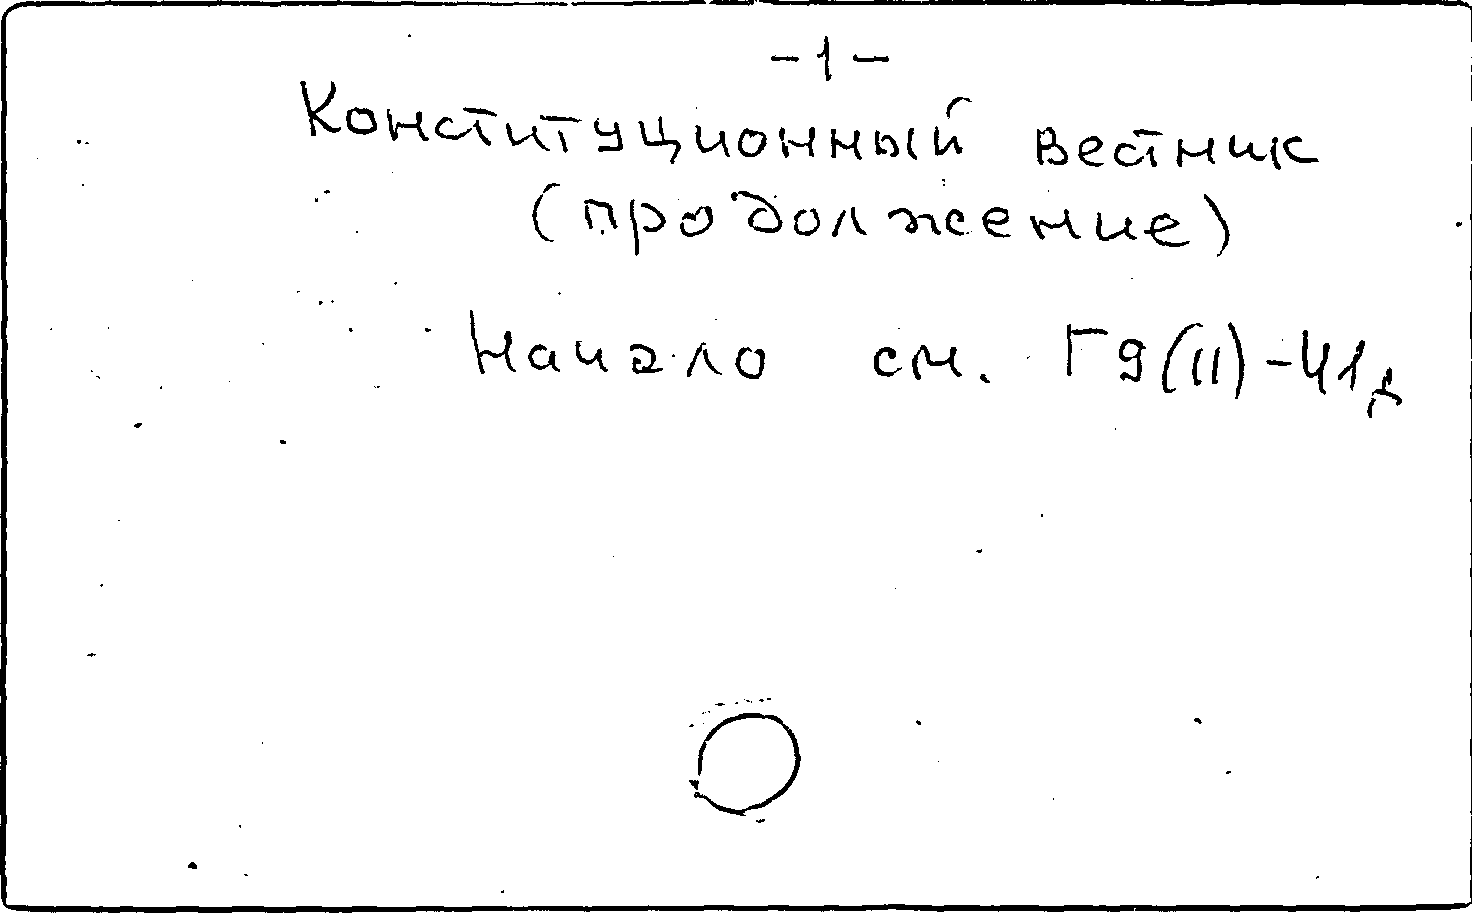 -1-
Конституционный вестник
(продолжение)
Начало см. Г9(II)-41д